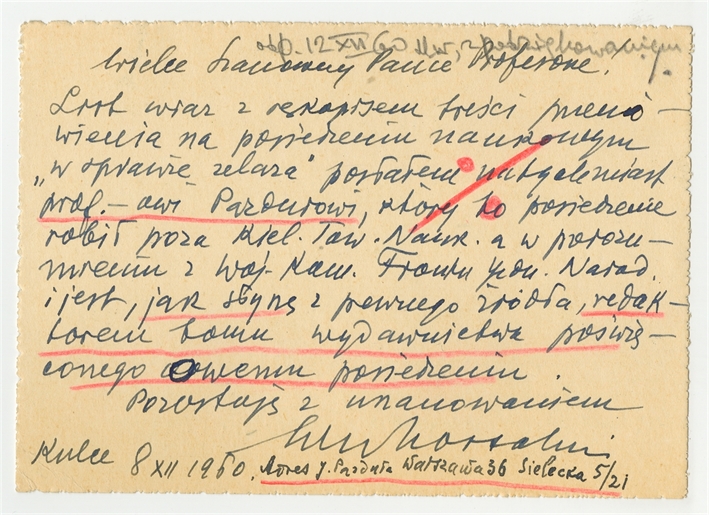 odp. 12 XII 60 z podziękowaniem.
Wielce Szanowny Panie Profesorze!
List wraz z rękopisem treści przemó-
wienia na posiedzeniu naukowym
„w sprawie żelaza" posłałem natychmiast
prof.-owi Pazdurowi, który to posiedzenie
robił poza Kiel. Tow. Nauk. a w porozu-
mieniu z Woj. Kom. Frontu Jedn. Narod.
i jest, jak słyszę z pewnego źródła, redak-
torem tomu wydawnictwa poświę-
conego owemu posiedzeniu.
Pozostaję z uszanowaniem
Kielce 8 XII 1960. Adres J. Pazdura Warszawa 36 Sielecka 5/21